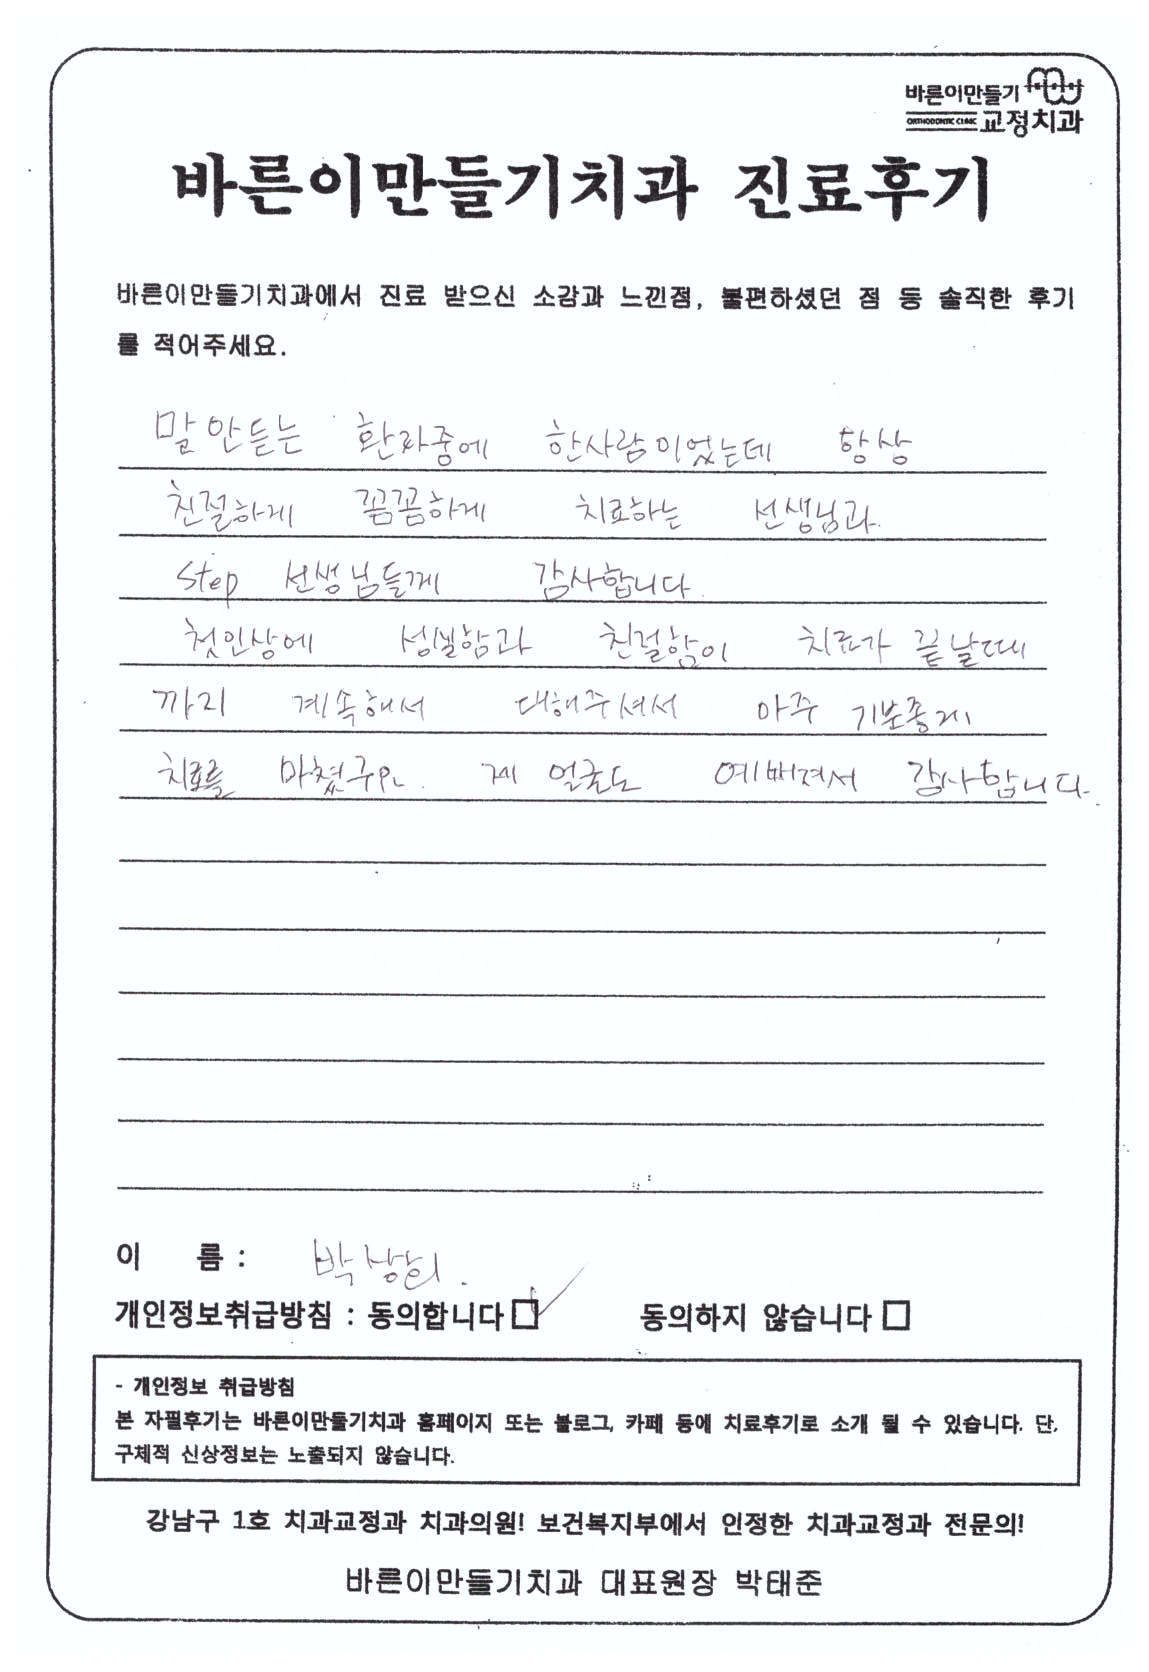 바른이만들기
ORTHODONTIC CLINIC 교정치과
바른이만들기치과 진료후기
바른이만들기치과에서 진료 받으신 소감과 느낀점, 불편하셨던 점 등 솔직한 후기
를 적어주세요.
말 안듣는 환자중에 한사람이었는데 항상
친절하게 꼼꼼하게 치료하는 선생님과
step 선생님들께 감사합니다.
첫인상에 성실함과 친절함이 치료가 끝날때
까지 계속해서 대해주셔서 아주 기분좋게
치료를 마쳤구요. 제 얼굴도 예뻐져서 감사합니다.
이 름 : 박상희.
개인정보취급방침 : 동의합니다 동의하지 않습니다
- 개인정보 취급방침
본 자필후기는 바른이만들기치과 홈페이지 또는 블로그, 카페 등에 치료후기로 소개 될 수 있습니다. 단,
구체적 신상정보는 노출되지 않습니다.
강남구 1호 치과교정과 치과의원! 보건복지부에서 인정한 치과교정과 전문의!
바른이만들기치과 대표원장 박태준